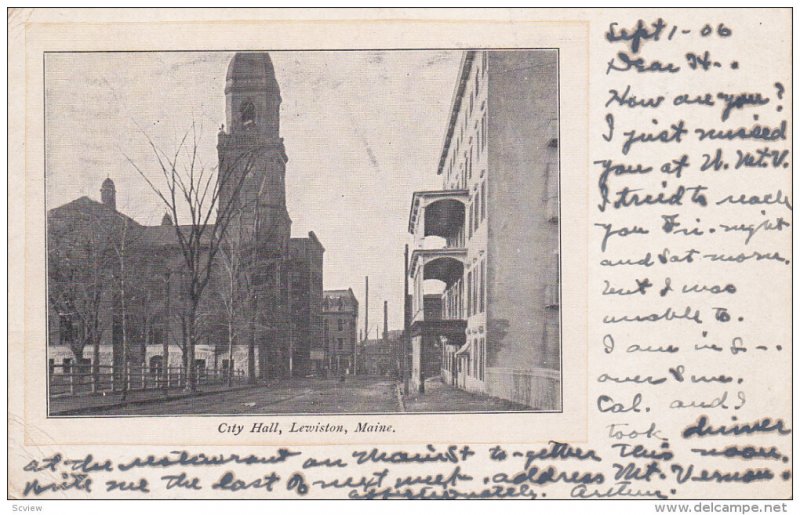 Sept 1-06
Dear H-.
How are you?
I just missed
you at W. Mt. V.
I tried to reach
you Fri. night
and Sat morn.
but I was
unable to.
I am in S-.
over Sun.
Cal. and I
took dinner
at the restaurant on Main St to-gether this noon.
Write me the last of next week. address Mt. Vernon.
affectionately. Arthur.
City Hall, Lewiston, Maine.
Scview
delcampe.net